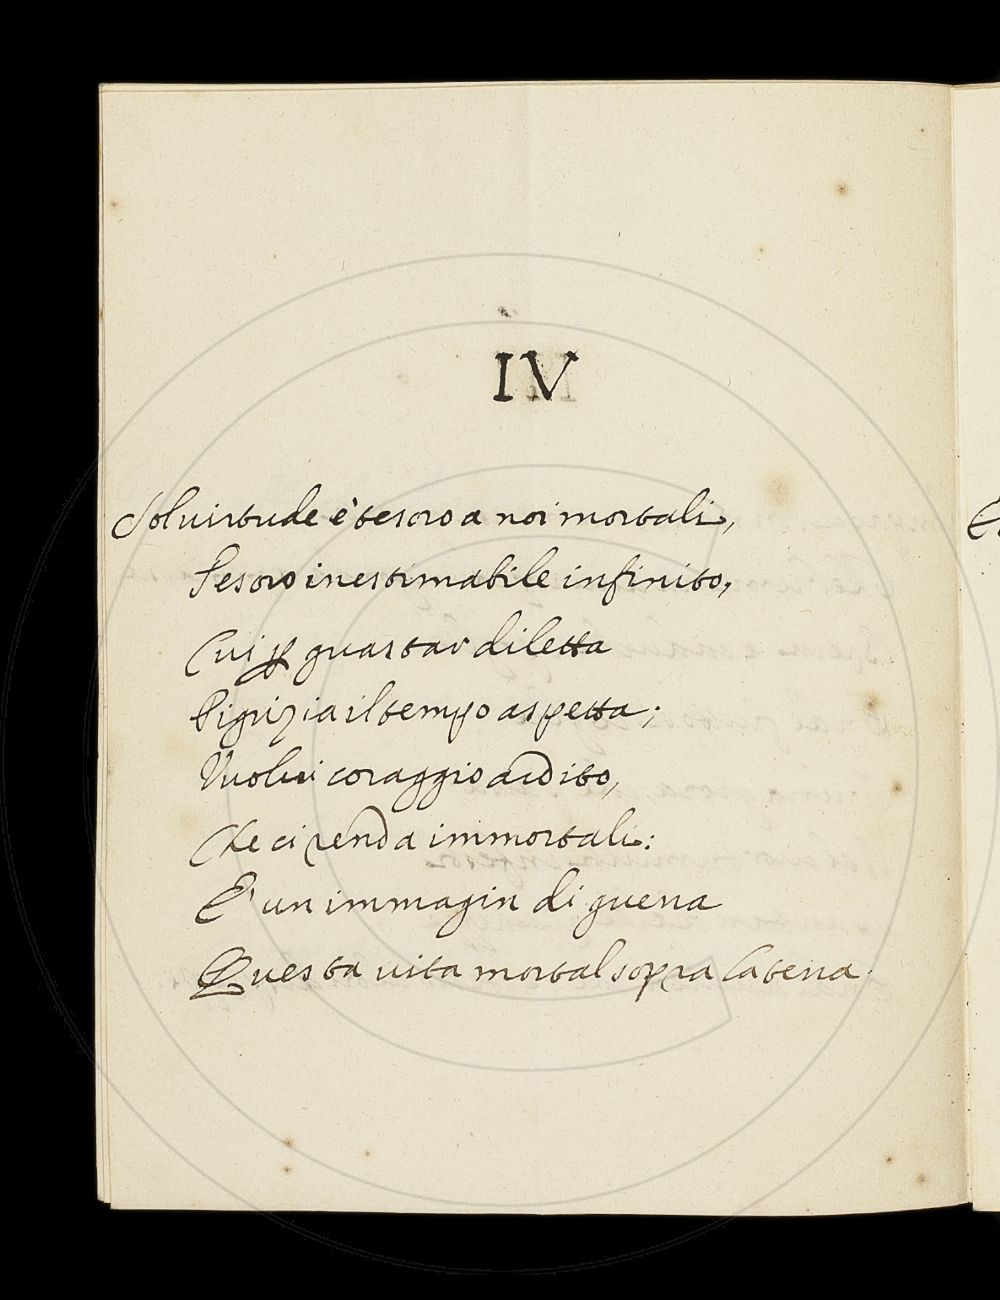 IV
Sol virtude è tesoro a noi mortali,
Tesoro inestimabile infinito,
Cui ꝑ guastar diletta
Pigrizia il tempo aspetta;
Vuolvi coraggio ardito,
Che ci renda immortali:
E' un immagin di guerra
Questa vita mortal sopra la terra.